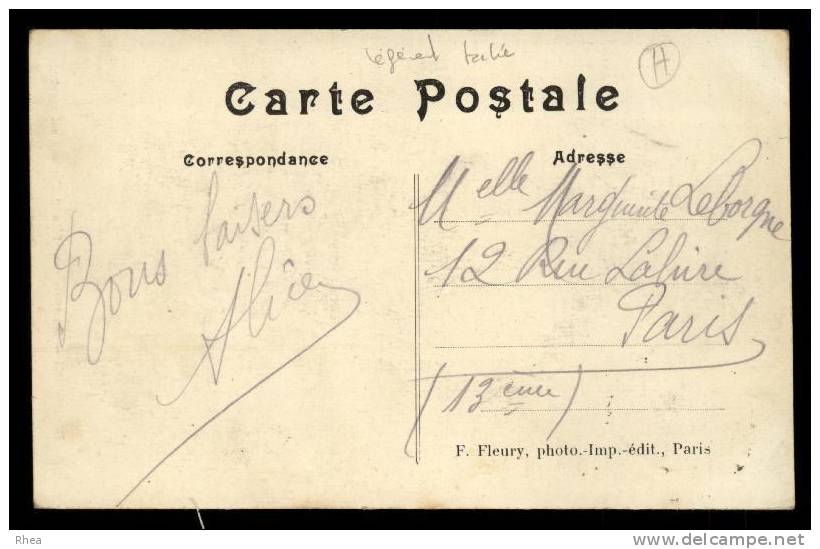 H
Carte Postale
Correspondance
Adresse
Bons baisers
Alice
Melle Marguerite Leborgne
12 Rue Lahire
Paris
(13ème)
F. Fleury, photo.-Imp.-édit., Paris
Rhea
www.delcampe.net